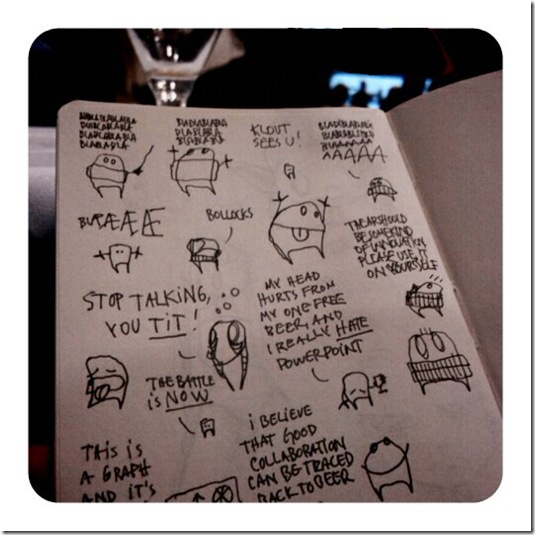 BLABLABLA
BLABLABLA
BLABLABLA
KLOUT
SEES U!
BOLLOCKS
STOP TALKING,
YOU TIT!
MY HEAD
HURTS FROM
MY ONE FREE
BEER, AND
I REALLY HATE
POWERPOINT
THERE SHOULD
BE SOME KIND
OF INNOVATION
PLEASE USE IT
ON YOURSELF
THE BATTLE
iS NOW
i BELIEVE
THAT GOOD
COLLABORATION
CAN BE TRACED
BACK TO BEER
THiS iS
A GRAPH
AND iT'S